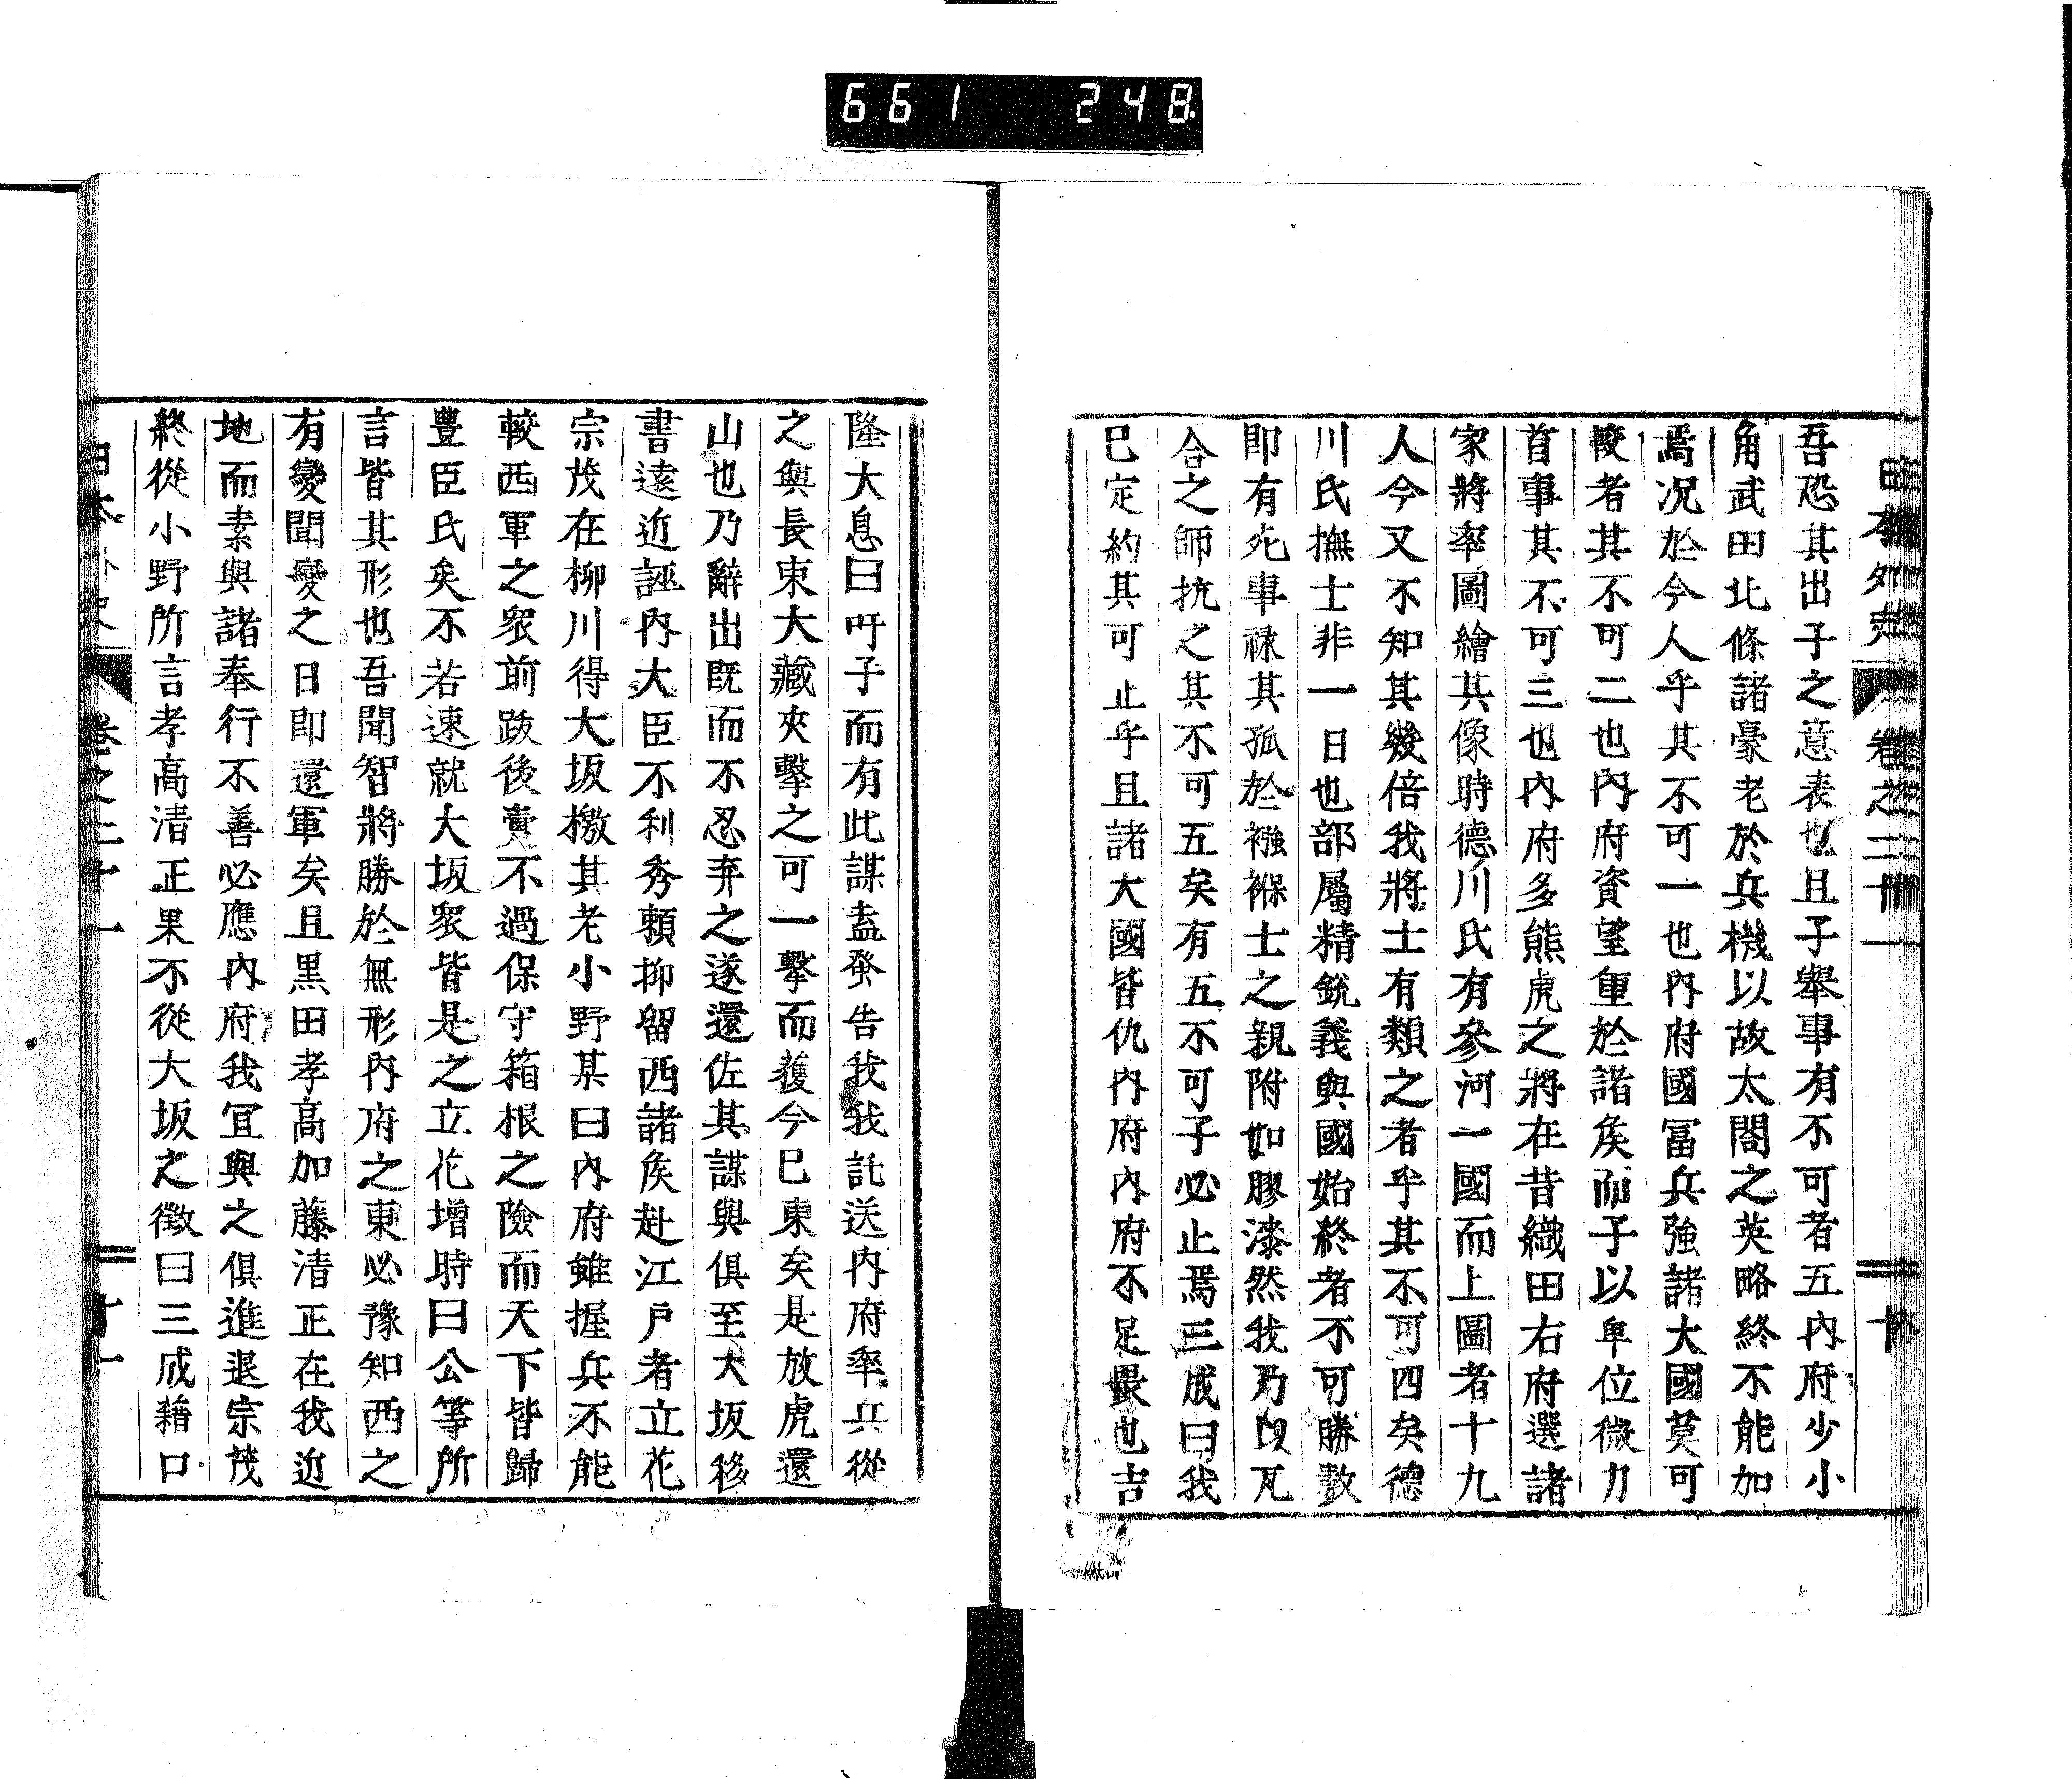 661 248
日本外史 卷之二十一 十
吾恐其出子之意表也且子舉事有不可者五內府少小
角武田北條諸豪老於兵機以故太閤之英略終不能加
焉況於今人乎其不可一也內府國富兵強諸大國莫可
較者其不可二也內府資望重於諸矦而子以卑位微力
首事其不可三也內府多熊虎之將在昔織田右府選諸
家將率圖繪其像時德川氏有參河一國而上圖者十九
人今又不知其幾倍我將士有類之者乎其不可四矣德
川氏撫士非一日也部屬精銳義與國始終者不可勝數
即有死事祿其孤於襁褓士之親附如膠漆然我乃以瓦
合之師抗之其不可五矣有五不可子必止焉三成曰我
已定約其可止乎且諸大國皆仇內府內府不足最也吉
隆大息曰吁子而有此謀盍蚤告我我託送內府率兵從
之與長束大藏夾擊之可一擊而獲今已東矣是放虎還
山也乃辭出既而不忍弃之遂還佐其謀與俱至大坂移
書遠近誣內大臣不利秀賴抑留西諸矦赴江戶者立花
宗茂在柳川得大坂檄其老小野某曰內府雖握兵不能
較西軍之眾前跋後疐不過保守箱根之險而天下皆歸
豐臣氏矣不若速就大坂眾皆是之立花增時曰公等所
言皆其形也吾聞智將勝於無形內府之東必豫知西之
有變聞變之日即還軍矣且黑田孝高加藤清正在我近
地而素與諸奉行不善必應內府我宜與之俱進退宗茂
終從小野所言孝高清正果不從大坂之徵曰三成藉口
日本外史 卷之二十一 十一